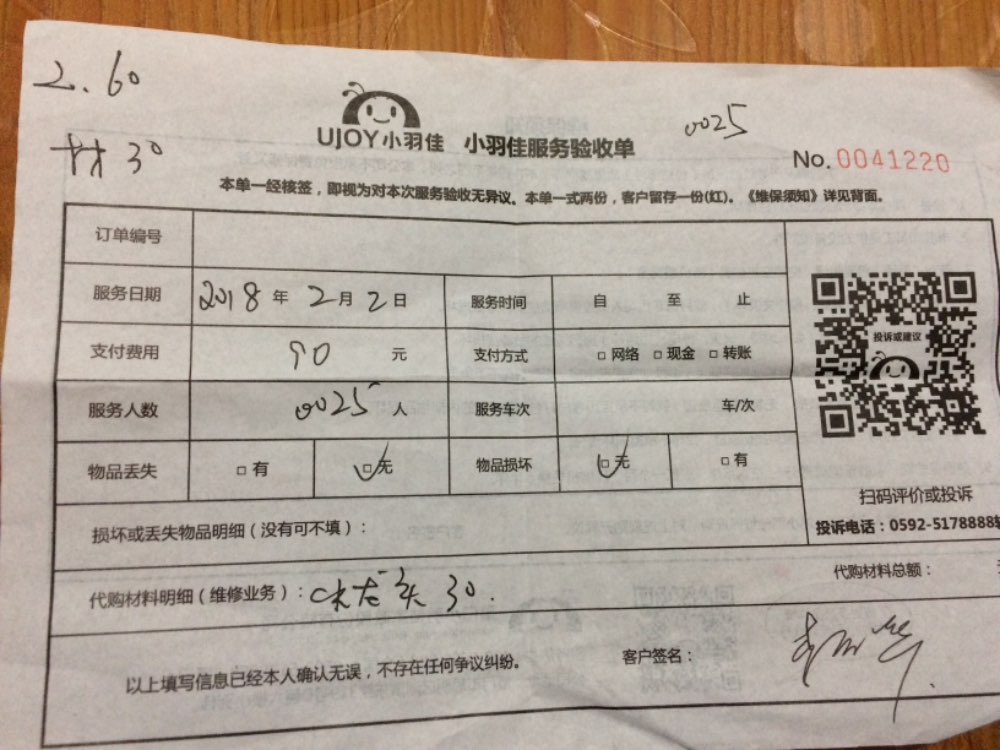 2.60
材 30
UJOY小羽佳 小羽佳服务验收单
0025
No.0041220
本单一经核签，即视为对本次服务验收无异议。本单一式两份，客户留存一份(红)。《维保须知》详见背面。
订单编号
服务日期 2018年2月2日 服务时间 自 至 止
支付费用 90 元 支付方式 □网络 □现金 □转账
服务人数 0025 人 服务车次 车/次
物品丢失 □有 □无 物品损坏 □无 □有
投诉或建议
扫码评价或投诉
投诉电话：0592-5178888转
损坏或丢失物品明细（没有可不填）：
代购材料明细（维修业务）： 30.
代购材料总额：
以上填写信息已经本人确认无误，不存在任何争议纠纷。
客户签名：